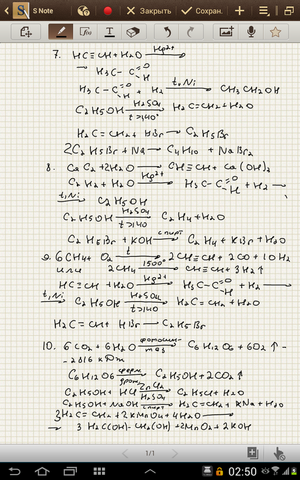 S Note
Закрыть
Сохран.
7. HC≡CH + H2O —Hg2+→
→ H3C–C=O H
H3C–C=O H + H2 —t, Ni→ CH3CH2OH
C2H5OH —H2SO4 t>140→ H2C=CH2 + H2O
H2C=CH2 + HBr → C2H5Br
2C2H5Br + Na → C4H10 + NaBr2
8. CaC2 + 2H2O → CH≡CH + Ca(OH)2
C2H2 + H2O —Hg2+→ H3C–C=O H + H2 →
t, Ni→ C2H5OH
C2H5OH —H2SO4 t>140→ C2H4 + H2O
C2H5Br + KOH —спирт→ C2H4 + KBr + H2O
9. 6CH4 + O2 —t→ 2CH≡CH + 2CO + 10H2
или 2CH4 —1500°→ CH≡CH + 3H2↑
HC≡CH + H2O —Hg2+→ H3C–C=O H + H2 →
t, Ni→ C2H5OH —H2SO4 t>140→ H2C=CH2 + H2O
H2C=CH2 + HBr → C2H5Br
10. 6CO2 + 6H2O —фотосинтез→ C6H12O6 + 6O2↑ –
– 2816 кДж
C6H12O6 —ферм. дрож.→ C2H5OH + 2CO2↑
C2H5OH + HCl —ZnCl2 H2SO4→ C2H5Cl + H2O
C2H5OH + NaOH —спирт→ H2C=CH2 + KNa + H2O
3H2C=CH2 + 2KMnO4 + 4H2O →
→ 3H2C(OH)–CH2(OH) + 2MnO2 + 2KOH
1/1
02:50